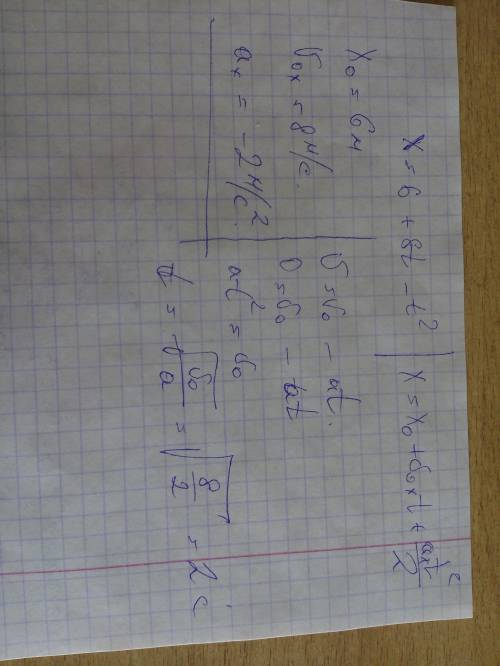 x = 6 + 8t - t² | x = x₀ + v₀ₓt + aₓt²/2
x₀ = 6м
v₀ₓ = 8м/с.
aₓ = -2м/с².
v = v₀ - at.
0 = v₀ - at
at² = v₀
t = √(v₀/a) = √(8/2) = 2 с